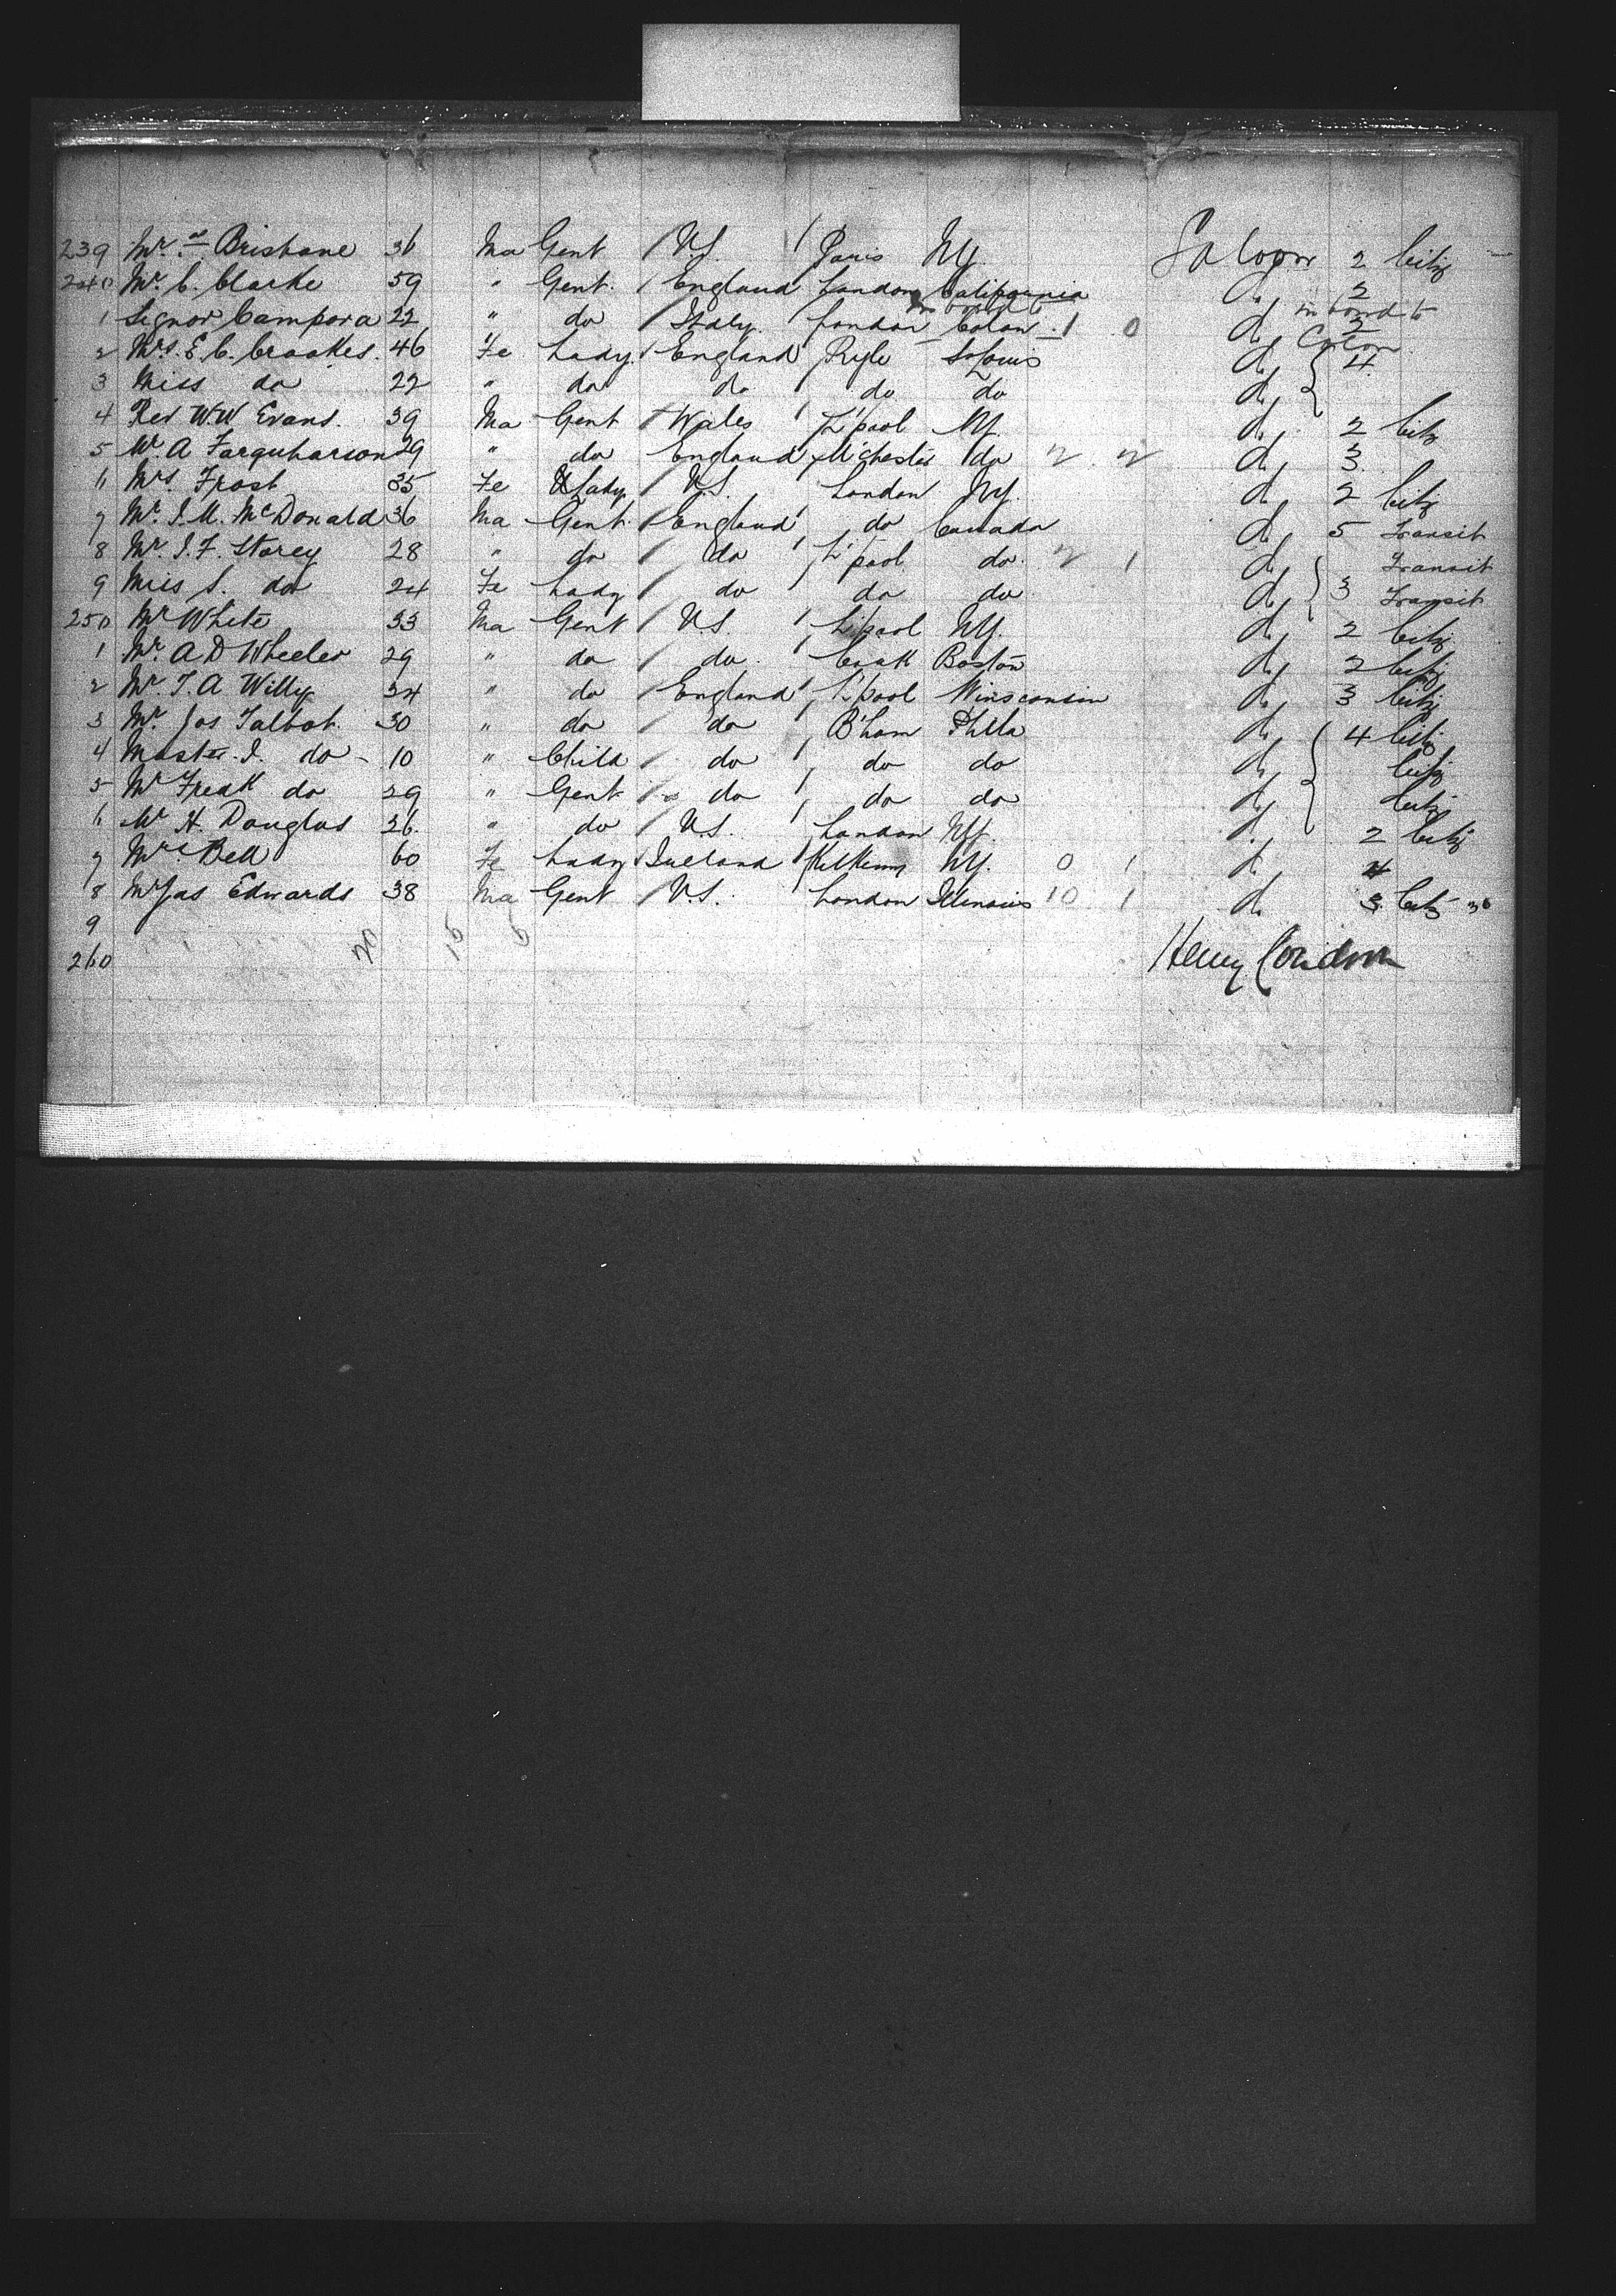 239 Mr. Brisbane 36 Ma Gent U.S. Paris N.Y. Saloon 2 Citz
240 Mr. C. Clarke 59 " Gent. England London California do 2
1 Signor Campora 22 " do Italy. London in bond to Colon 1 0 do 2 in bond to Colon
2 Mrs. E. C. Crookes. 46 Fe Lady. England Ryle St Louis do 4
3 Miss do 22 " do do do do do
4 Rev W.W Evans. 39 Ma Gent Wales L'pool N.Y. do 2 Citz
5 Mr. A Farquharson 29 " do England M'chester do 2 2 do 3
6 Mrs. Frost 35 Fe Lady U.S. London N.Y. do 2 Citz
7 Mr. J. M. McDonald 36 Ma Gent England do Canada do 5 Transit
8 Mr. J. F. Storey 28 " do do L'pool do. 2 1 do Transit
9 Miss S. do 24 Fe Lady do do do do 3 Transit
250 Mr White 33 Ma Gent U.S. L'pool N.Y. do 2 Citz
1 Mr. A D Wheeler 29 " do do. Cork Boston do 2 Citz
2 Mr. T. A Willy 34 " do England L'pool Winsconsin do 3 Citz
3 Mr Jas Talbot. 30 " do do B'ham Phila do 4 Citz
4 Master. J. do - 10 " Child do do do do Citz
5 Mr Fredk do 29 " Gent do do do do Citz
6 Mr H. Douglas 26. " do U.S. London N.Y. do 2 Citz
7 Mrs. Bell 60 Fe Lady Ireland Kilkenny N.Y. 0 1 do 4
8 Mr Jas Edwards 38 Ma Gent U.S. London Illinois 10 1 do 3 Citz
9
260 20 15 5 Henry Condon